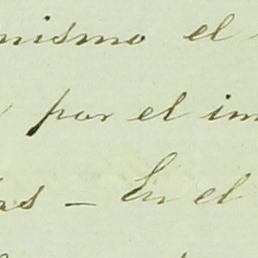 nismo el
por el im
as — En el